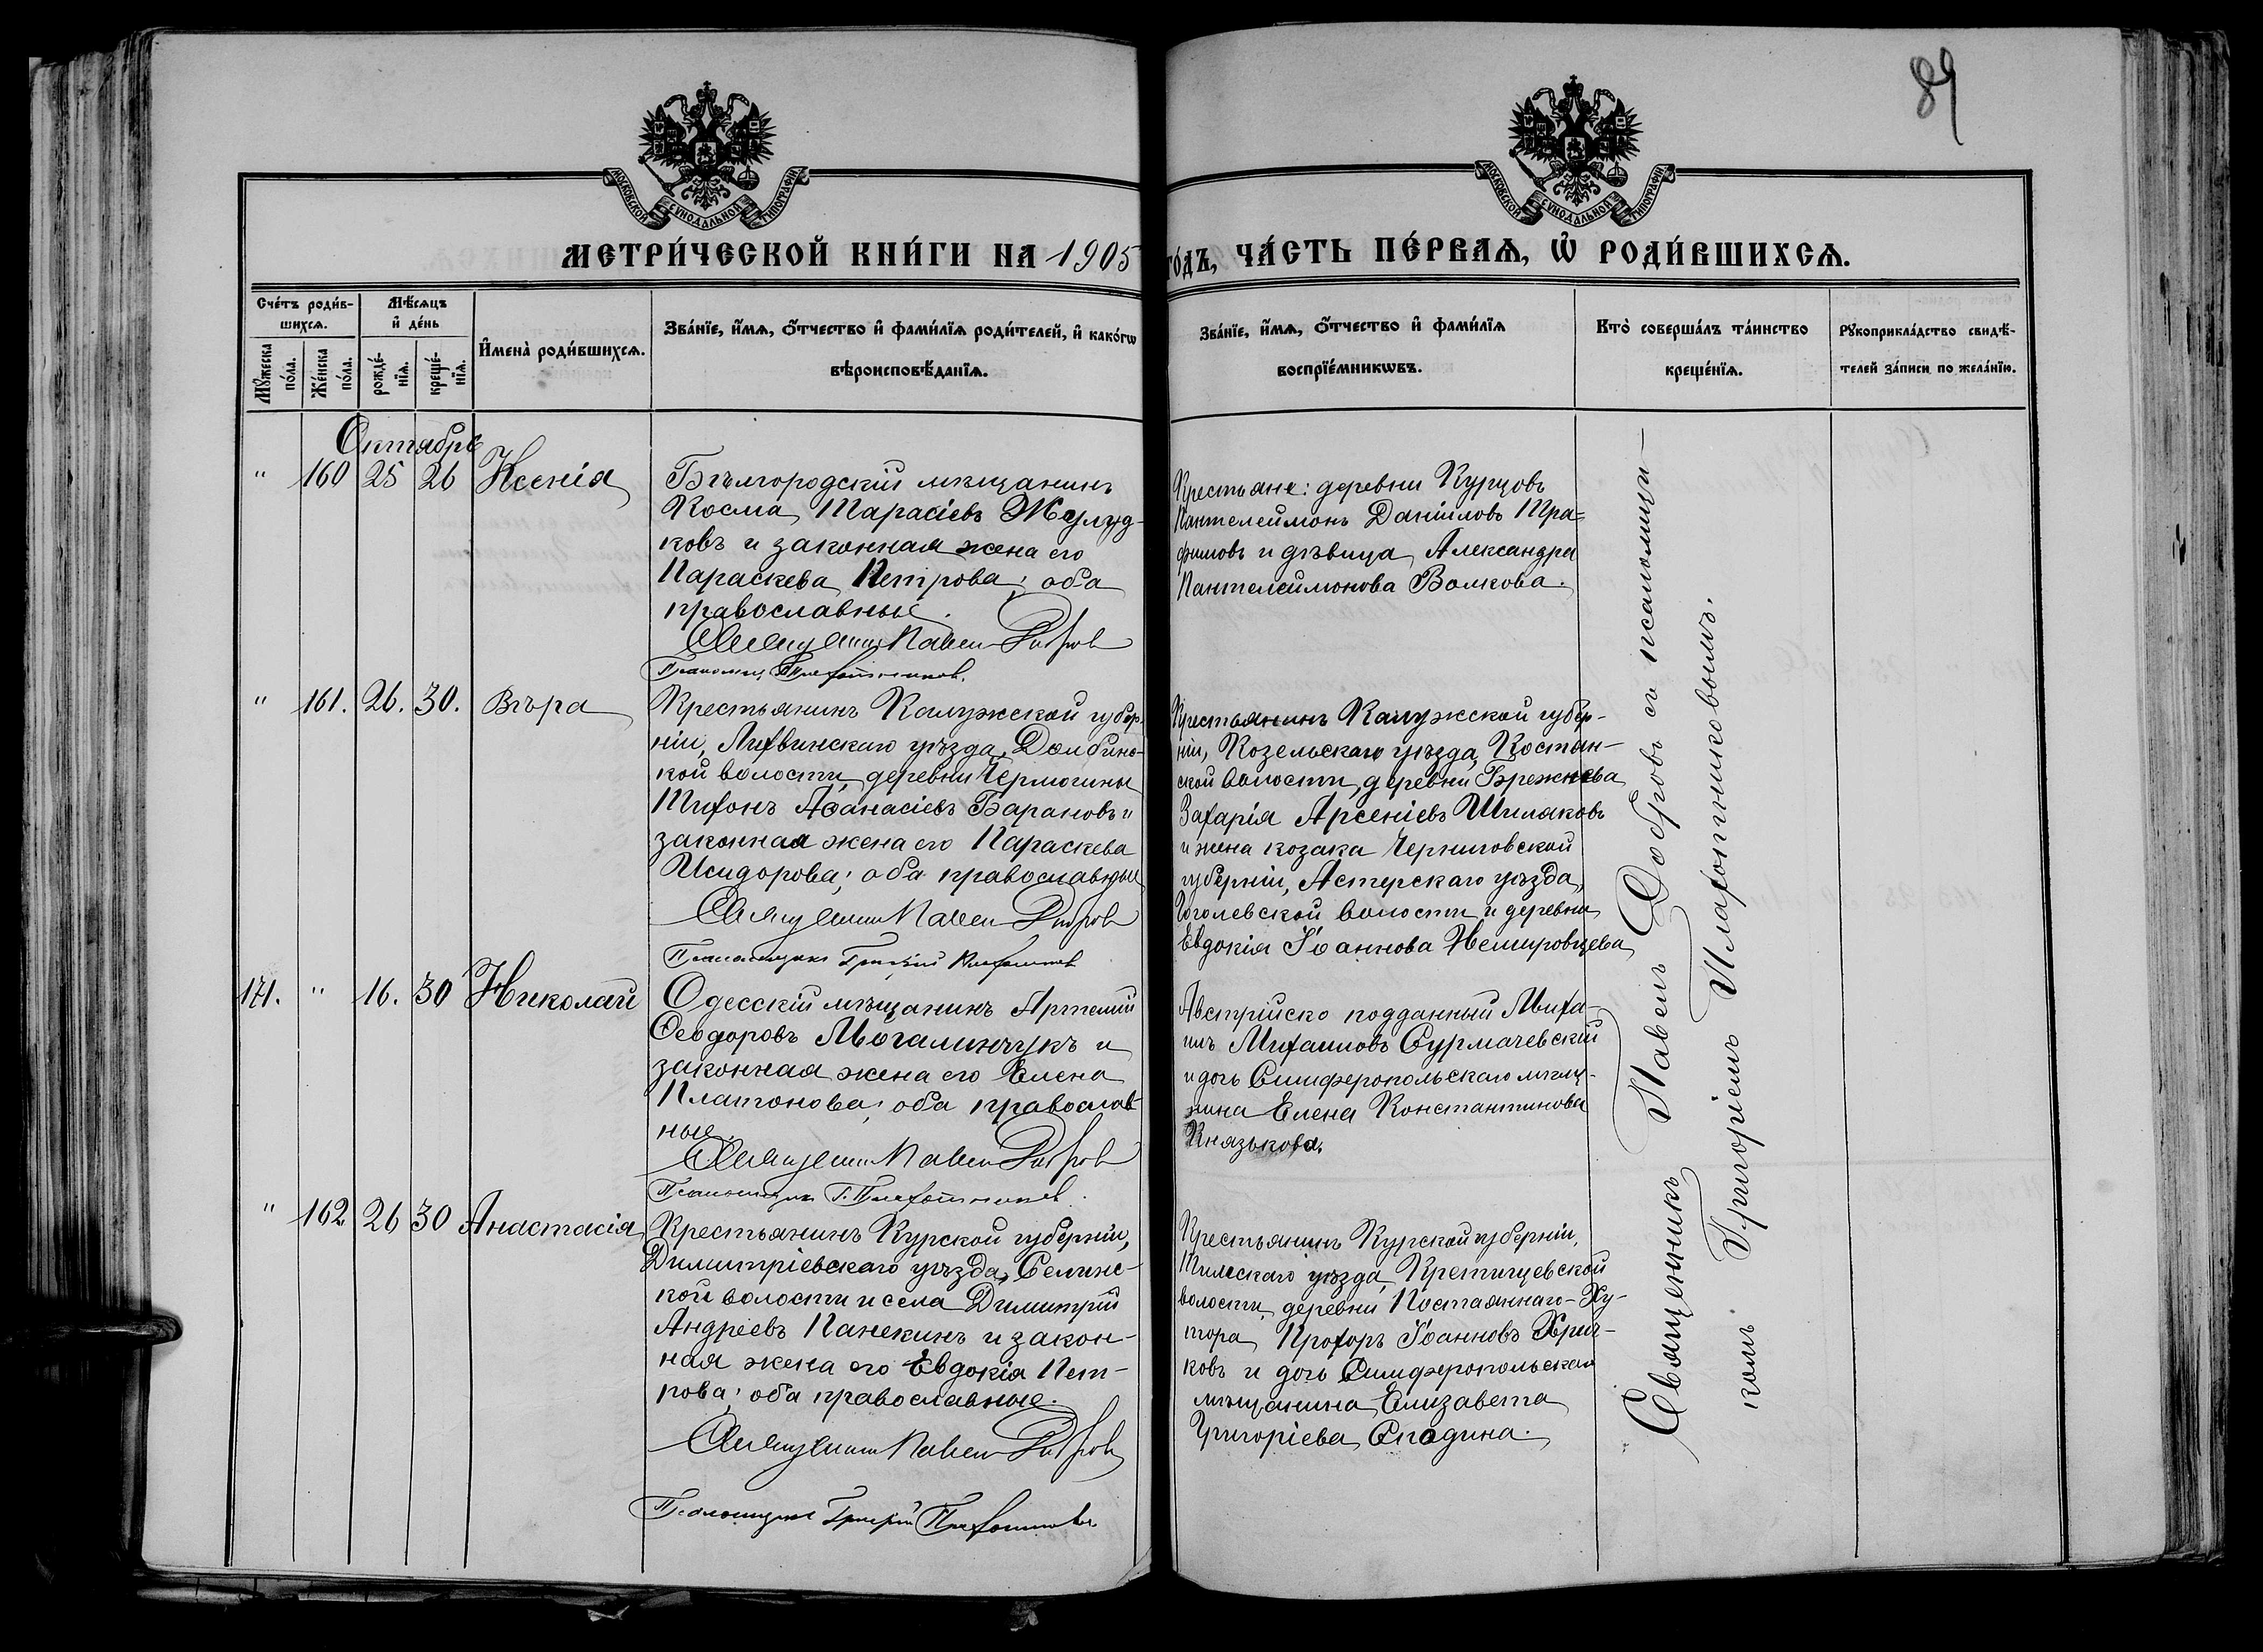 89
МОСКОВСКОЙ СѴНОДАЛЬНОЙ ТИПОГРАФІИ
МОСКОВСКОЙ СѴНОДАЛЬНОЙ ТИПОГРАФІИ
МЕТРИ́ЧЕСКОЙ КНИ́ГИ НА 1905 ГО́ДЪ, ЧА́СТЬ ПЕ́РВАѦ, Ѡ҆ РОДИ́ВШИХСѦ.
Сче́тъ роди́в-
шихсѧ.
Мѣ́сѧцъ
и҆ де́нь
Мꙋ́жеска
по́ла.
Же́нска
по́ла.
рожде́-
нїѧ.
креще́-
нїѧ.
И҆мена̀ роди́вшихсѧ.
Зва́нїе, и҆́мѧ, ѻ҆́тчество и҆ фами́лїѧ роди́телей, и҆ како́гѡ
вѣроисповѣ́данїѧ.
Зва́нїе, и҆́мѧ, ѻ҆́тчество и҆ фами́лїѧ
воспрїе́мникѡвъ.
Кто̀ соверша́лъ та́инство
креще́нїѧ.
Рꙋкоприкла́дство свидѣ́-
телей за́писи по жела́нїю.
Октябрь
" 160 25 26 Ксенія
Бѣлгородскій мѣщанинъ
Косма Тарасіевъ Желуд-
ковъ и законная жена его
Параскева Петрова; оба
православные.
Священникъ Павелъ Добровъ
Псаломщ. Плахотниковъ.
Крестьяне: деревни Курцовъ
Пантелеймонъ Даніиловъ Тра=
фимовъ и дѣвица Александра
Пантелеймонова Волкова.
" 161. 26. 30. Вѣра
Крестьянинъ Калужской губер-
ніи, Лихвинскаго уѣзда, Домбинс-
кой волости, деревни Чермогины
Тихонъ Аѳанасіевъ Барановъ и
законная жена его Параскева
Исидорова; оба православные
Священникъ Павелъ Добровъ
Псаломщикъ Григорій Плахотниковъ
Крестьянинъ Калужской губер-
ніи, Козельскаго уѣзда, Костын-
ской волости, деревни Брежнева
Захарія Арсеніевъ Шиляковъ
и жена козака Черниговской
губерніи, Астерскаго уѣзда,
Гоголевской волости и деревни
Евдокія Іоаннова Немировцева
171. " 16. 30 Николай
Одесскій мѣщанинъ Артемій
Ѳеодоровъ Могалинчукъ и
законная жена его Елена
Платонова; оба православ-
ные.
Священникъ Павелъ Добровъ
Псаломщикъ Г. Плахотниковъ.
Австрійско подданный Миха-
илъ Михаиловъ Сурмачевскій
и дочь Симферопольскаго мѣщ-
нина Елена Константинова
Князькова.
" 162 26 30 Анастасія
Крестьянинъ Курской губерніи,
Димитріевскаго уѣзда, Селинс-
кой волости и села Димитрій
Андреевъ Панекинъ и закон-
ная жена его Евдокія Пет-
рова; оба православные.
Священникъ Павелъ Добровъ
Псаломщикъ Григорій Плахотниковъ
Крестьянинъ Курской губерніи,
уѣзда,
волости, деревни Постояннаго-Ху-
тора Прохоръ Іоанновъ
ковъ и дочь Симферопольскаго
мѣщанина Елизавета
Григоріева Спадина.
Священникъ Павелъ Добровъ съ псаломщи-
комъ Григоріемъ Плахотниковымъ.